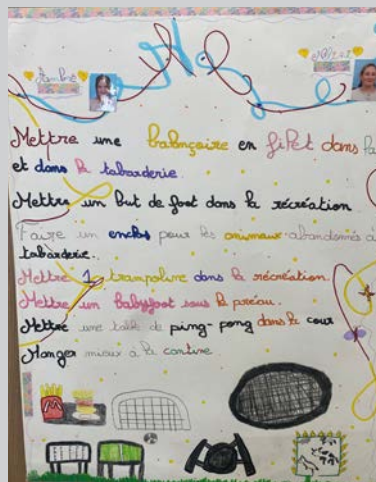 Ambre
Mettre une balançoire en filet dans
et dans la tabarderie.
Mettre un but de foot dans la récréation
Faire un enclos pour les animaux abandonnés à
tabarderie.
Mettre 1 trampoline dans la récréation.
Mettre un babyfoot sous le préau.
Mettre une table de ping-pong dans la cour
Manger mieux à la cantine